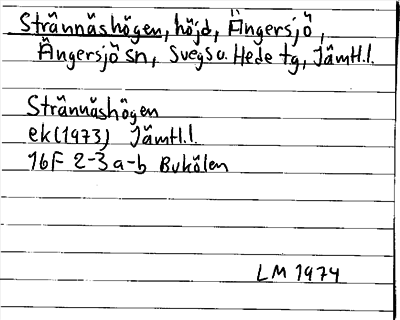 Strännäshögen, höjd, Ängersjö,
Ängersjö sn, Svegs o. Hede tg, Jämtl.l.
Strännäshögen
ek(1973) Jämtl.l.
16F 2-3 a-b Bukölen
LM 1974